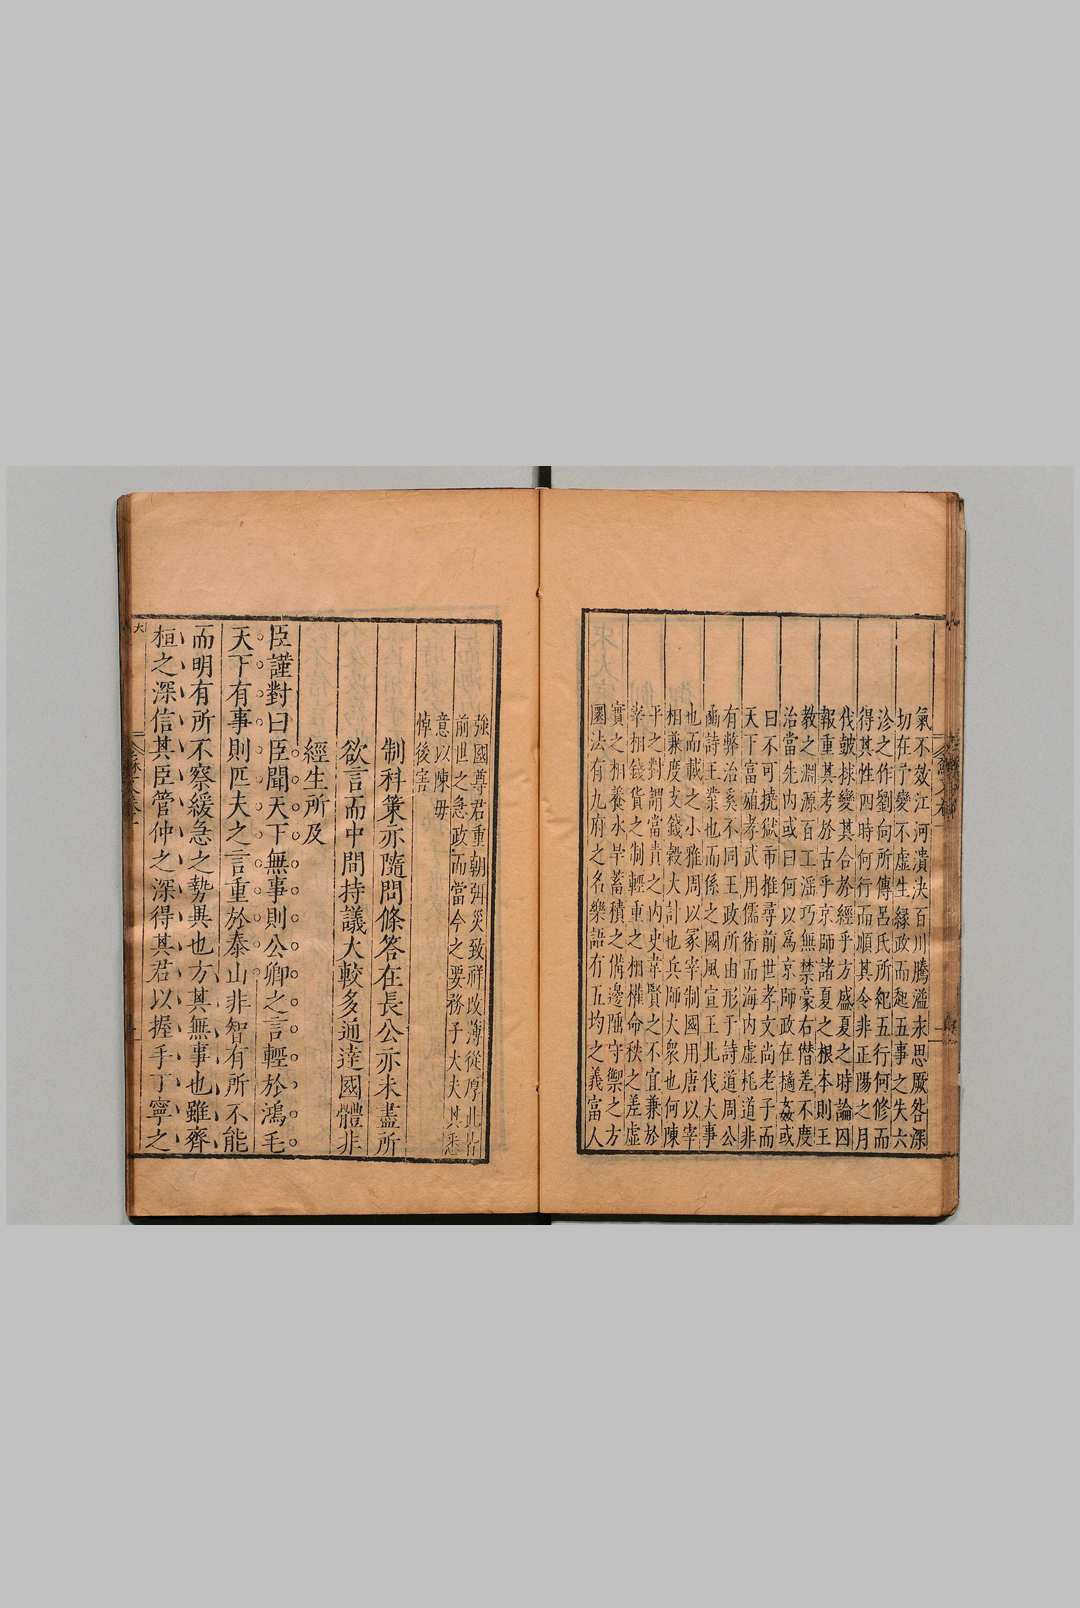 氣不效江河潰決百川騰溢永思厥咎深
切在予變不虛生緣政而起五事之失六
沴之作劉向所傳呂氏所紀五行何修而
得其性四時何行而順其令非正陽之月
伐鼓捄變其合於經乎方盛夏之時論囚
報重其考於古乎京師諸夏之根本則王
教之淵源百工淫巧無禁豪右僭差不度
治當先內或曰何以為京師政在擿姦或
曰不可撓獄市推尋前世孝文尚老子而
天下富殖孝武用儒術而海內虛耗道非
有弊治奚不同王政所由形于詩道周公
豳詩王業也而係之國風宣王北伐大事
也而載之小雅周以冢宰制國用唐以宰
相兼度支錢穀大計也兵師大衆也何陳
平之對謂當責之內史韋賢之不宜兼於
宰相錢貨之制輕重之相權命秩之差虛
實之相養水旱蓄積之備邊陲守禦之方
圜法有九府之名樂語有五均之義富人
強國尊君重朝弭災致祥改薄從厚此皆
前世之急政而當今之要務子大夫其悉
意以陳毋
悼後害
制科策亦隨問條答在長公亦未盡所
欲言而中間持議大較多通達國體非
經生所及
臣謹對曰臣聞天下無事則公卿之言輕於鴻毛
天下有事則匹夫之言重於泰山非智有所不能
而明有所不察緩急之勢異也方其無事也雖齊
桓之深信其臣管仲之深得其君以握手丁寧之